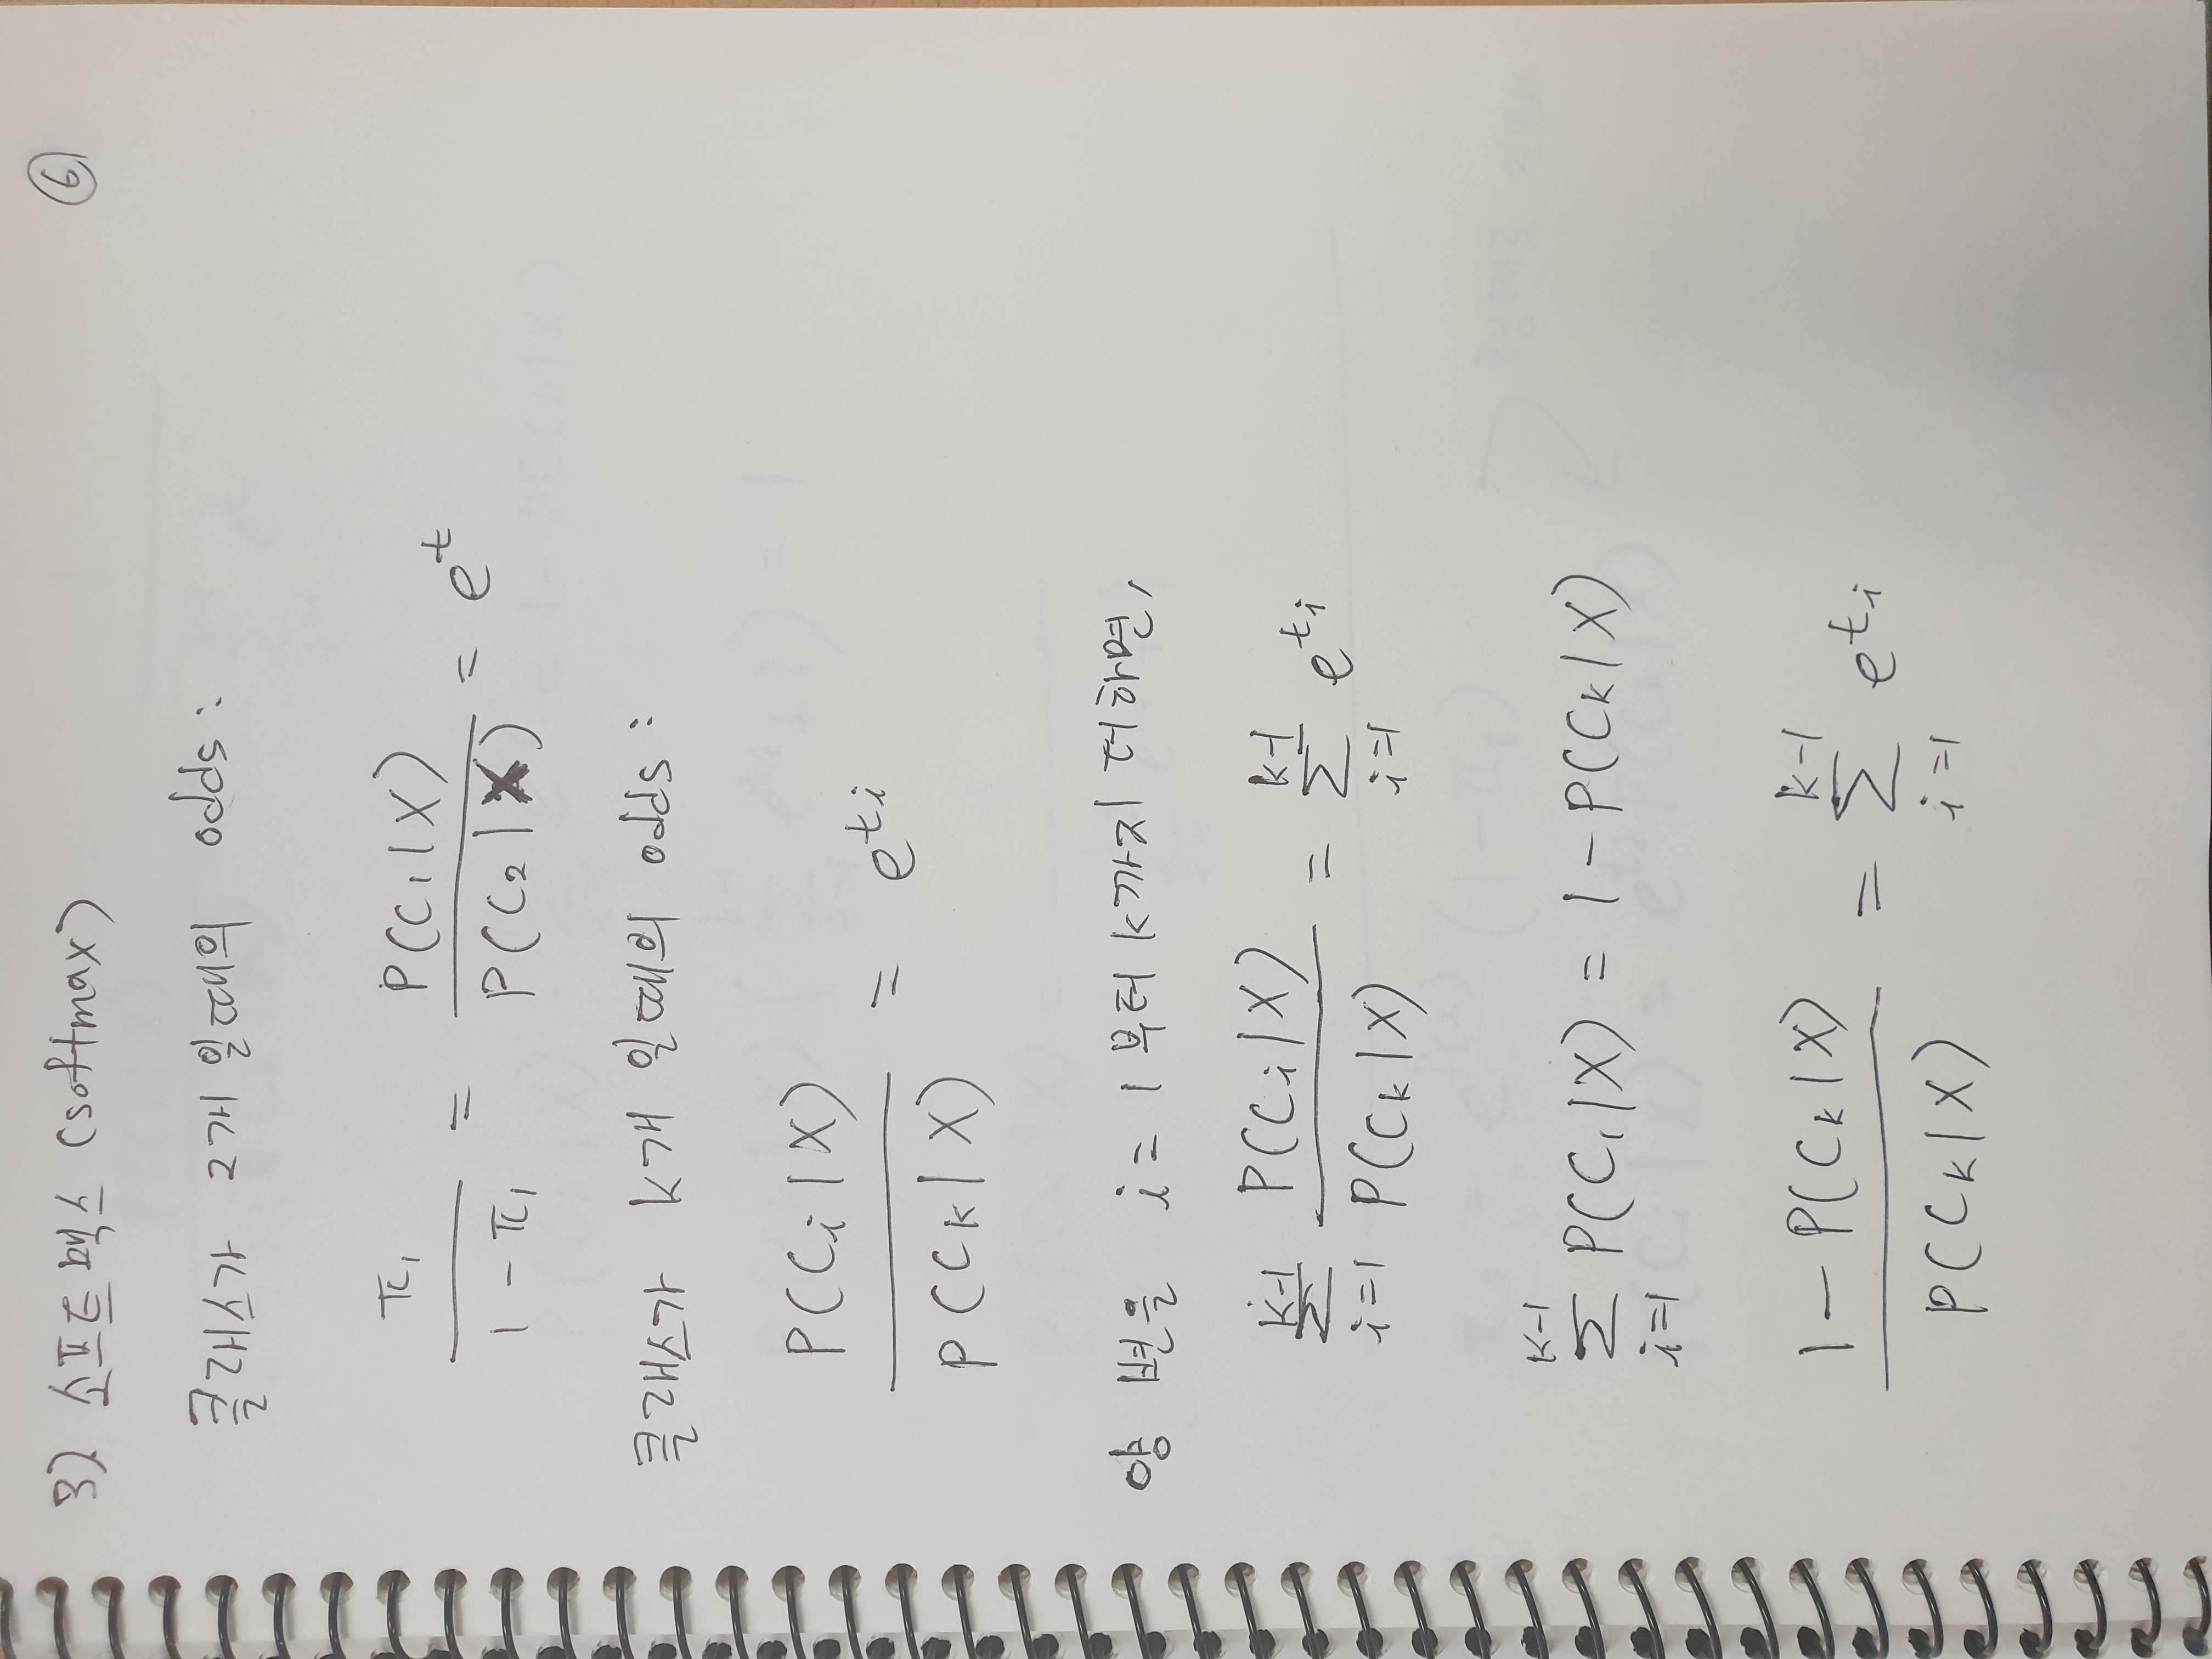 3) 소프트맥스 (softmax) ⑥
클래스가 2개 일때의 odds:
π₁ / (1 - π₁) = P(C₁|X) / P(C₂|X) = e^t
클래스가 K개 일때의 odds:
P(Cᵢ|X) / P(C_K|X) = e^{tᵢ}
양 변을 i=1부터 K까지 더하면,
Σ_{i=1}^{K-1} P(Cᵢ|X) / P(C_K|X) = Σ_{i=1}^{K-1} e^{tᵢ}
Σ_{i=1}^{K-1} P(C₁|X) = 1 - P(C_K|X)
(1 - P(C_K|X)) / P(C_K|X) = Σ_{i=1}^{K-1} e^{tᵢ}